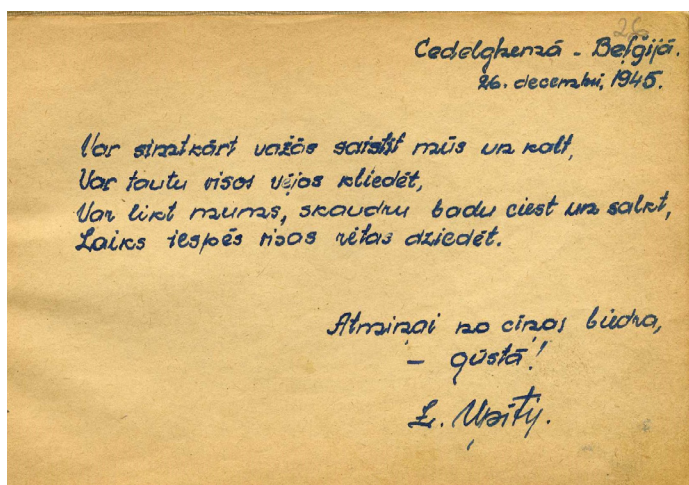 26
Cedelghemā - Beļģijā.
26. decembrī, 1945.
Var simtkārt važās saistīt mūs un kalt,
Var tautu visos vējos kliedēt,
Var likt mums, skaudru badu ciest un salkt,
Laiks iespēs visas rētas dziedēt.
Atmiņai no cīņas biedra,
- gūstā!
Upītis.